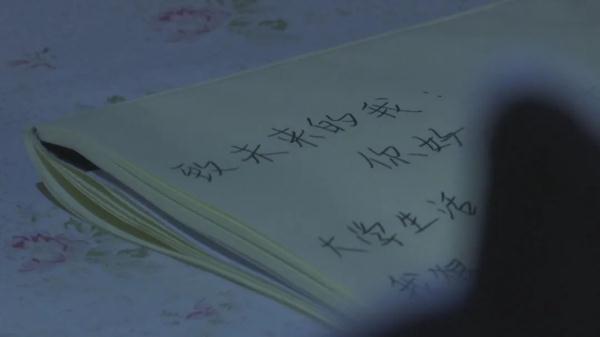 致未来的我:
你好
大学生活
我